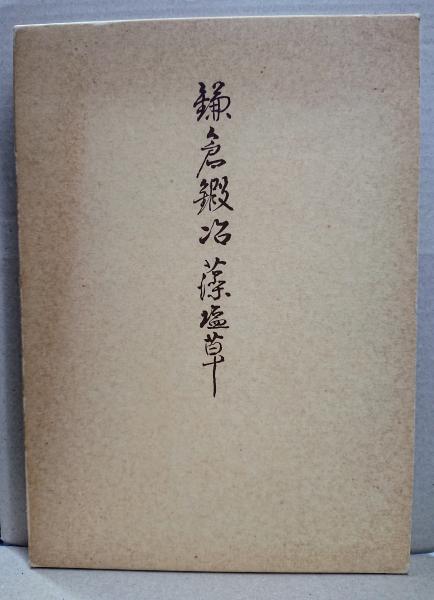 鎌倉鍛冶藻塩草